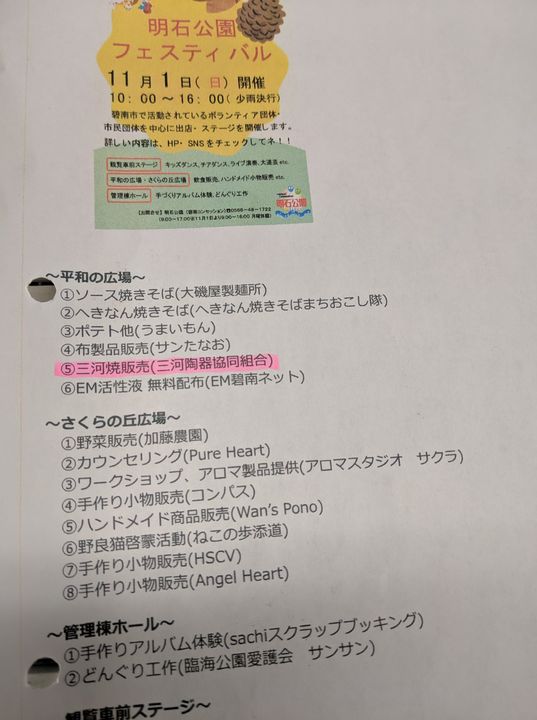 明石公園
フェスティバル
11月1日(日)開催
10:00~16:00(少雨決行)
碧南市で活動されているボランティア団体・
市民団体を中心に出店・ステージを開催します。
詳しい内容は、HP・SNSをチェックしてネ!!
観覧車前ステージ キッズダンス、チアダンス、ライブ演奏、大道芸 etc.
平和の広場・さくらの丘広場 飲食販売、ハンドメイド小物販売 etc.
管理棟ホール 手づくりアルバム体験、どんぐり工作
明石公園
~平和の広場~
①ソース焼きそば(大磯屋製麺所)
②へきなん焼きそば(へきなん焼きそばまちおこし隊)
③ポテト他(うまいもん)
④布製品販売(サンたなお)
⑤三河焼販売(三河陶器協同組合)
⑥EM活性液 無料配布(EM碧南ネット)
~さくらの丘広場~
①野菜販売(加藤農園)
②カウンセリング(Pure Heart)
③ワークショップ、アロマ製品提供(アロマスタジオ サクラ)
④手作り小物販売(コンパス)
⑤ハンドメイド商品販売(Wan's Pono)
⑥野良猫啓蒙活動(ねこの歩添道)
⑦手作り小物販売(HSCV)
⑧手作り小物販売(Angel Heart)
~管理棟ホール~
①手作りアルバム体験(sachiスクラップブッキング)
②どんぐり工作(臨海公園愛護会 サンサン)
観覧車前ステージ~